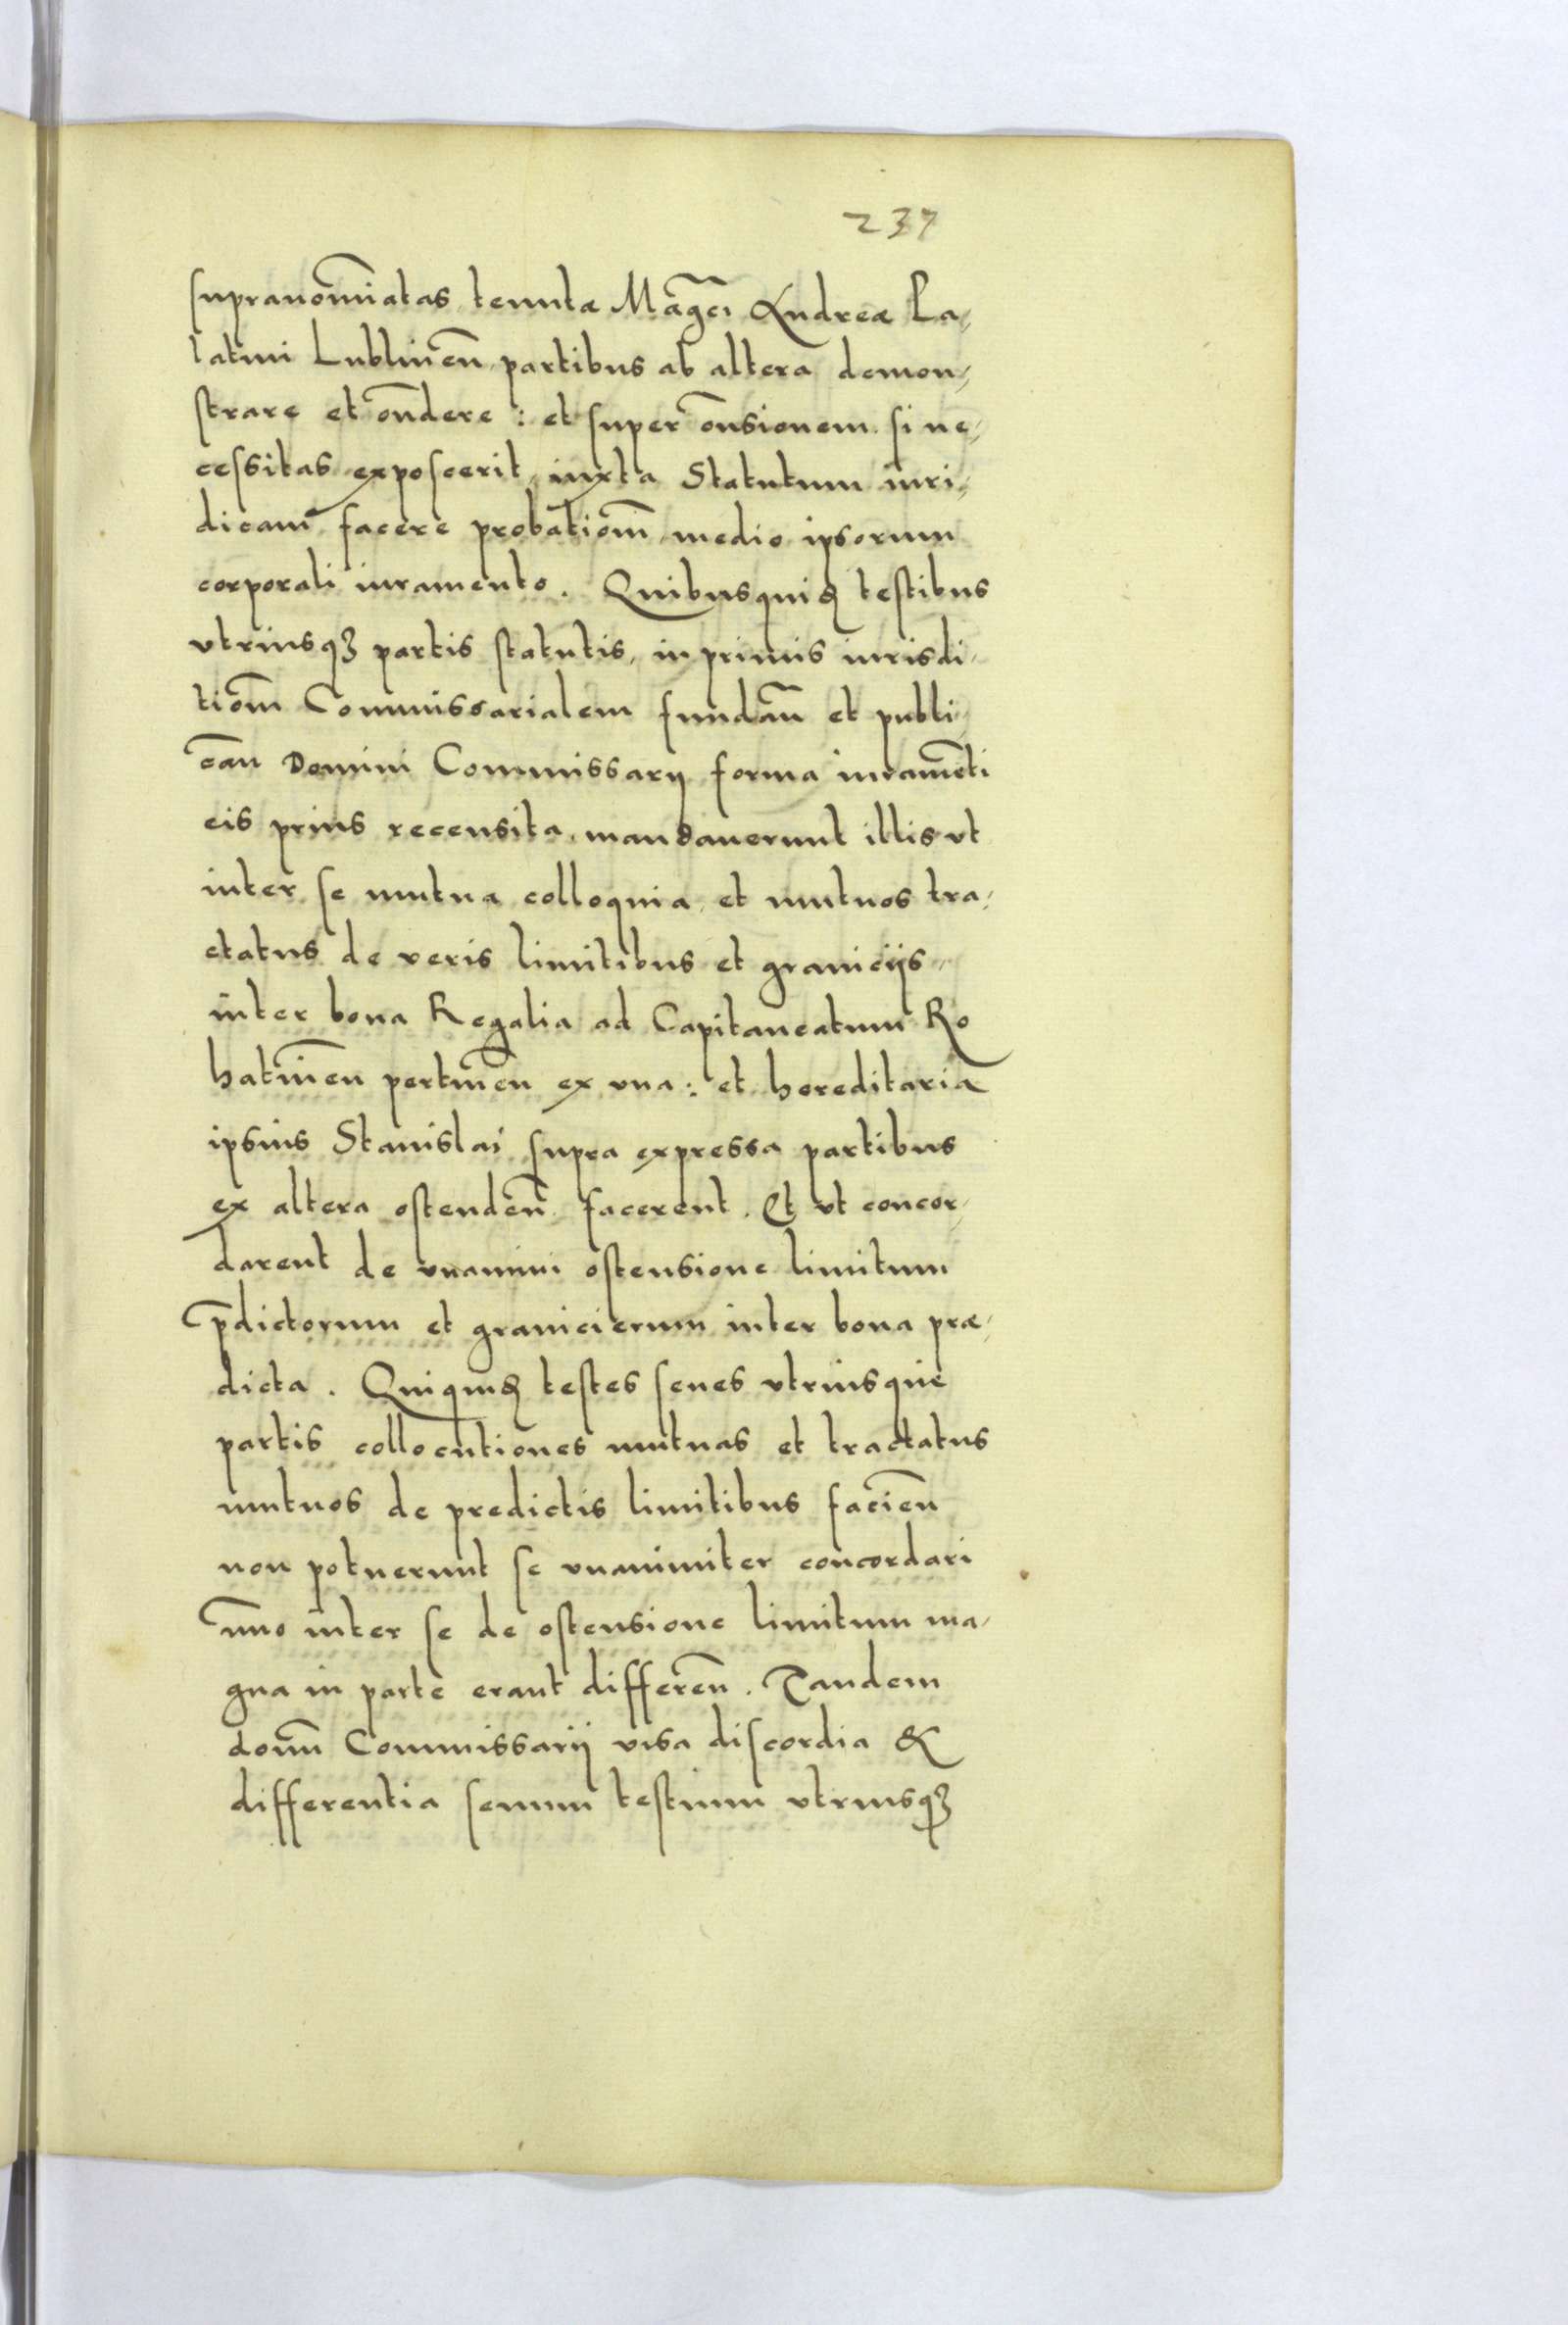 237
supranom̃iatas tenutæ Mag̃ci Andreæ Pa⸗
latini Lublineñ partibus ab altera demon⸗
strare et oñdere : et super oñsionem si ne⸗
cessitas exposcerit, iuxta Statutum iuri⸗
dicam facere probatiom̃ medio ipsorum
corporali iuramento. Quibusquiđ testibus
vtriusqȝ partis statutis, in primis iurisdi⸗
tiom̃ Commissarialem fundañ et publi⸗
cañ Domini Commissarij forma iuram̃eti
eis prius recensita, mandauerunt illis vt
inter se mutua colloquia et mutuos tra⸗
ctatus de veris limitibus et graniciis
inter bona Regalia ad Capitaneatum Ro
hatineñ pertineñ ex vna : et hereditaria
ipsius Stanislai supra expressa partibus
ex altera ostendeñ facerent. Et vt concor⸗
darent de vnanimi ostensione limitum
p̃dictorum et granicierum inter bona præ⸗
dicta. Quiquiđ testes senes vtriusque
partis collocutiones mutuas et tractatus
mutuos de predictis limitibus facieñ
non potuerunt se vnanimiter concordari
im̃o inter se de ostensione limitum ma⸗
gna in parte erant differeñ. Tandem
domñ Commissarij visa discordia &
differentia senum testium vtriusqȝ